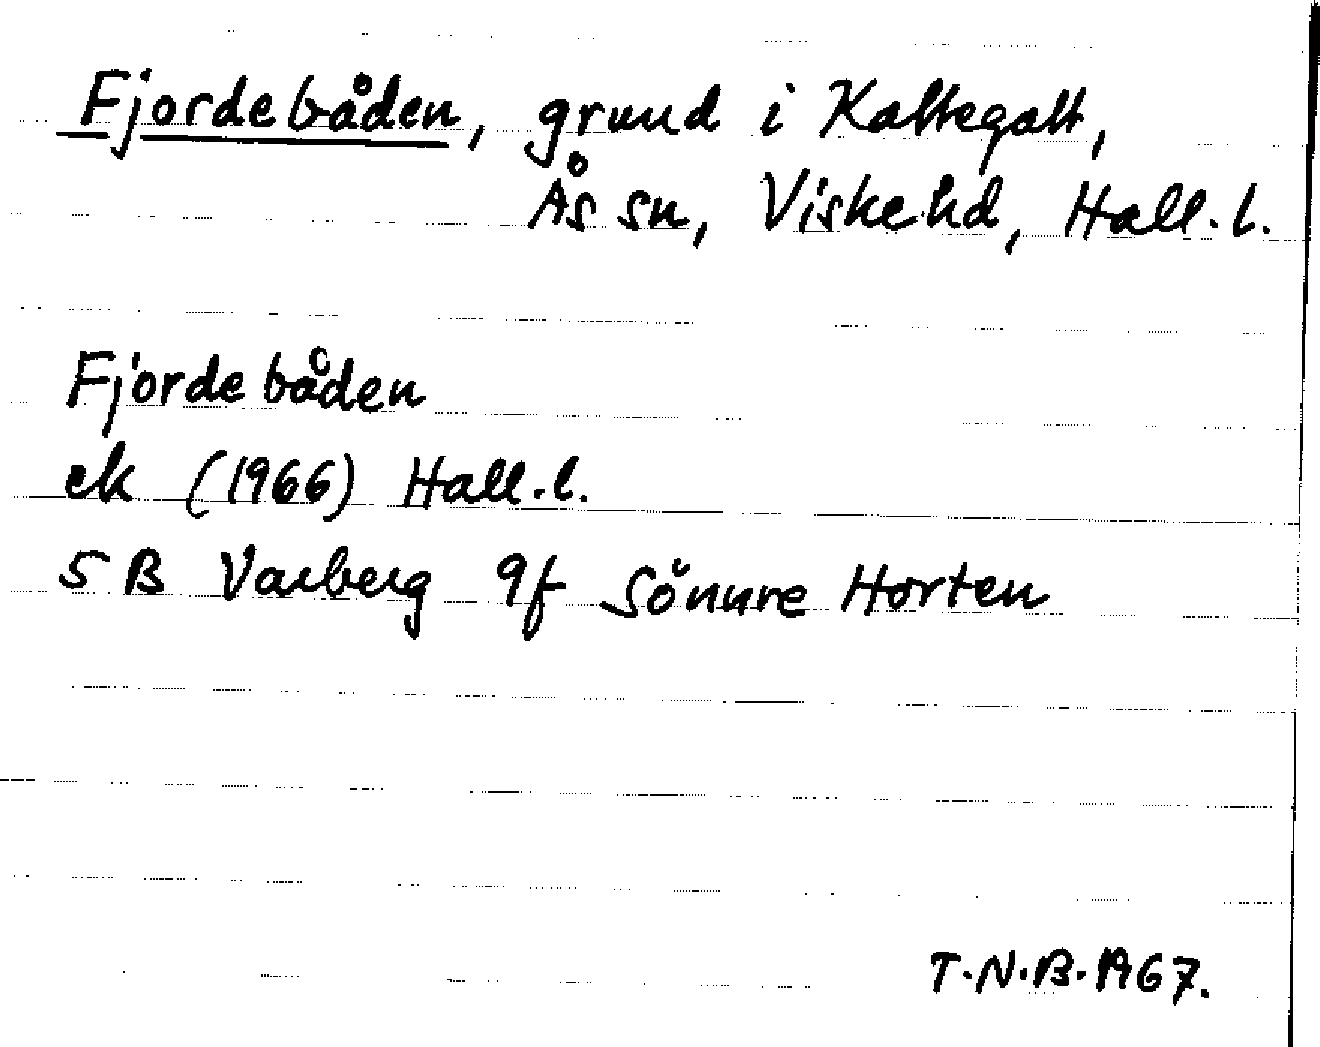 Fjordebåden, grund i Kattegatt,
Ås sn, Viske hd, Hall. l.
Fjordebåden
ek (1966) Hall. l.
5 B Varberg 9f Sönnre Horten
T.N.B. 1967.